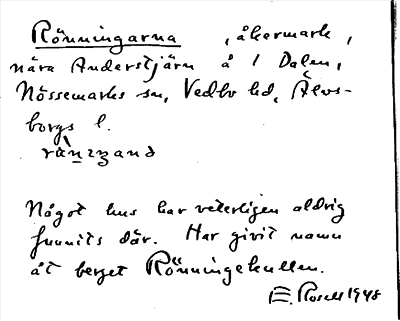 Rönningarna, åkermark,
nära Anderstjärn å 1 Dalen,
Nössemarks sn, Vedbo hd, Älvs-
borgs l.
Något hus har veterligen aldrig
funnits där. Har givit namn
åt berget Rönningekullen.
E. Rosell 1948